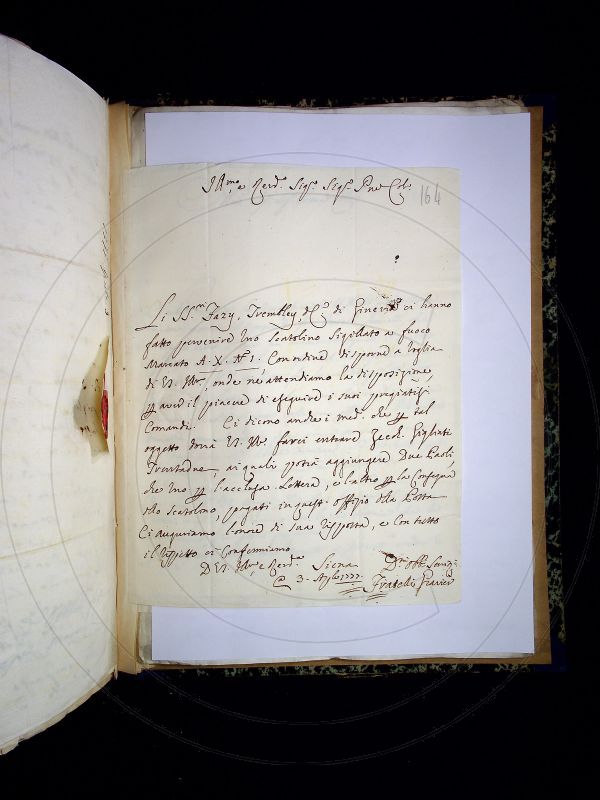 Ill.mo e Rev.d Sig.r Sig.r P.ne Col.
164
Li SS.ri Fazy, Trembley, & C.a di Ginevra ci hanno
fatto pervenire uno Scatolino Sigillato a fuoco
Marcato A. X. N.o 1. Con ordine disporne a Voglia
di V.S. Ill.ma, onde ne attendiamo la disposizione,
per aver il piacere di eseguire i suoi pregiatis.i
Comandi. Ci dicono anche i med.i che per tal
oggetto dovrà V.S. Ill.ma farci entrare Zecch. Gigliati
Trentadue, ai quali potrà aggiungere Due Paoli,
che uno per l'acclusa Lettera, e l'altro per la Consegna
dello Scatolino, pagati in quest' offizio della Posta
Ci auguriamo l'onore di sua risposta, e con tutto
il rispetto ci confermiamo
D. V.S. Ill.ma e Rev.d Siena
3. 1777.
D.mi Obb. Servi.
Fratelli